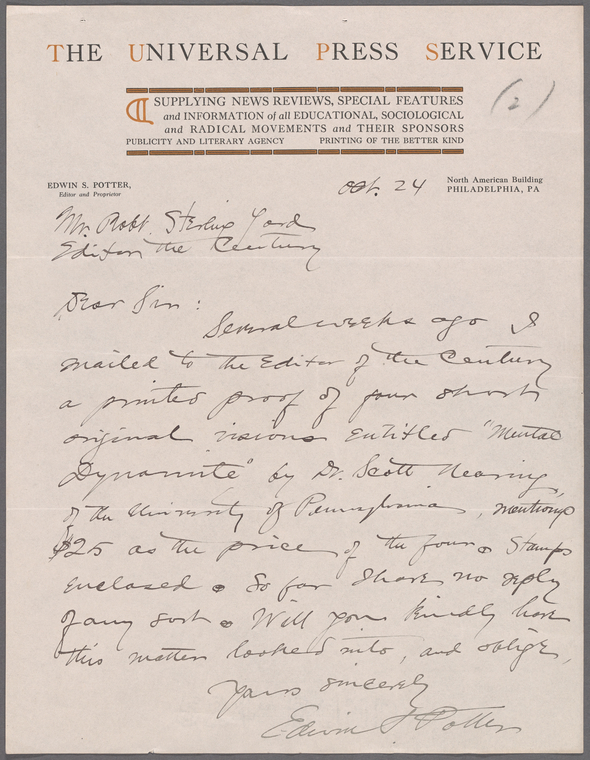 THE UNIVERSAL PRESS SERVICE
SUPPLYING NEWS REVIEWS, SPECIAL FEATURES
and INFORMATION of all EDUCATIONAL, SOCIOLOGICAL
and RADICAL MOVEMENTS and THEIR SPONSORS
PUBLICITY AND LITERARY AGENCY PRINTING OF THE BETTER KIND
(2)
EDWIN S. POTTER,
Editor and Proprietor
Oct. 24
North American Building
PHILADELPHIA, PA
Mr. Robt. Sterling Yard
Editor the Century
Dear Sir:
Several weeks ago I
mailed to the Editor of the Century
a printed proof of four short
original visions entitled "Mental
Dynamite" by Dr. Scott Nearing,
of the University of Pennsylvania, mentioning
$25 as the price of the four. Stamps
enclosed. So far I have no reply
of any sort. Will you kindly have
this matter looked into, and oblige,
Yours sincerely
Edwin S Potter